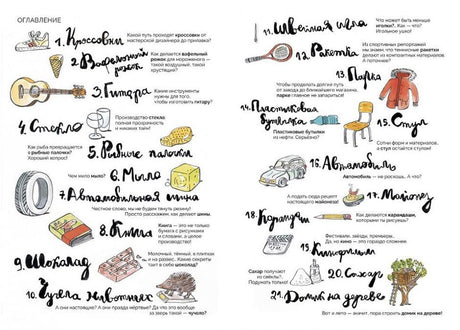 ОГЛАВЛЕНИЕ
1. Кроссовки
Какой путь проходят кроссовки от
мастерской дизайнера до прилавка?
2. Вафельный рожок
Как делается вафельный
рожок для мороженого —
такой воздушный, такой
хрустящий?
3. Гитара
Какие инструменты
нужны для того,
чтобы изготовить гитару?
4. Стекло
Производство стекла:
полная прозрачность
и никаких тайн!
5. Рыбные палочки
Как рыба превращается
в рыбные палочки?
Хороший вопрос!
6. Мыло
Чем мило мыло?
7. Автомобильная шина
Честное слово, мы не будем тянуть резину!
Просто расскажем, как делают шины.
8. Книга
Книга — это не только
бумага с рисунками
и словами, а целое
производство!
9. Шоколад
Молочный, тёмный, в плитках
и россыпью. Какие секреты
таит в себе шоколад?
10. Чучела животных
А они настоящие? А они правда мёртвые? Да что это вообще
за зверь такой — чучело?
11. Швейная игла
Что может быть меньше
иголки? Как — что?
Игольное ушко!
12. Ракетка
Из спортивных репортажей
мы знаем, что теннисные ракетки
делают из композитов.
А точнее?
13. Парка
Чтобы проделать долгий путь
от завода до ближайшего магазина,
парке главное не запариться!
14. Пластиковая бутылка
Пластиковые бутылки
из нефти. Серьёзно?
15. Стул
Сотни форм и материалов,
а стул остаётся стулом!
16. Автомобиль
Автомобиль — не роскошь. А что?
17. Майонез
А подать сюда рецепт
настоящего майонеза!
18. Карандаш
Как делаются карандаши,
которыми ты рисуешь?
19. Кинофильм
Фестивали, звёзды, премьеры.
Да, но кино — это гораздо сложнее.
20. Сахар
Сахар получают
из свёклы?..
Подумать только!
21. Домик на дереве
Вот и лето — значит, пора строить домик на дереве!